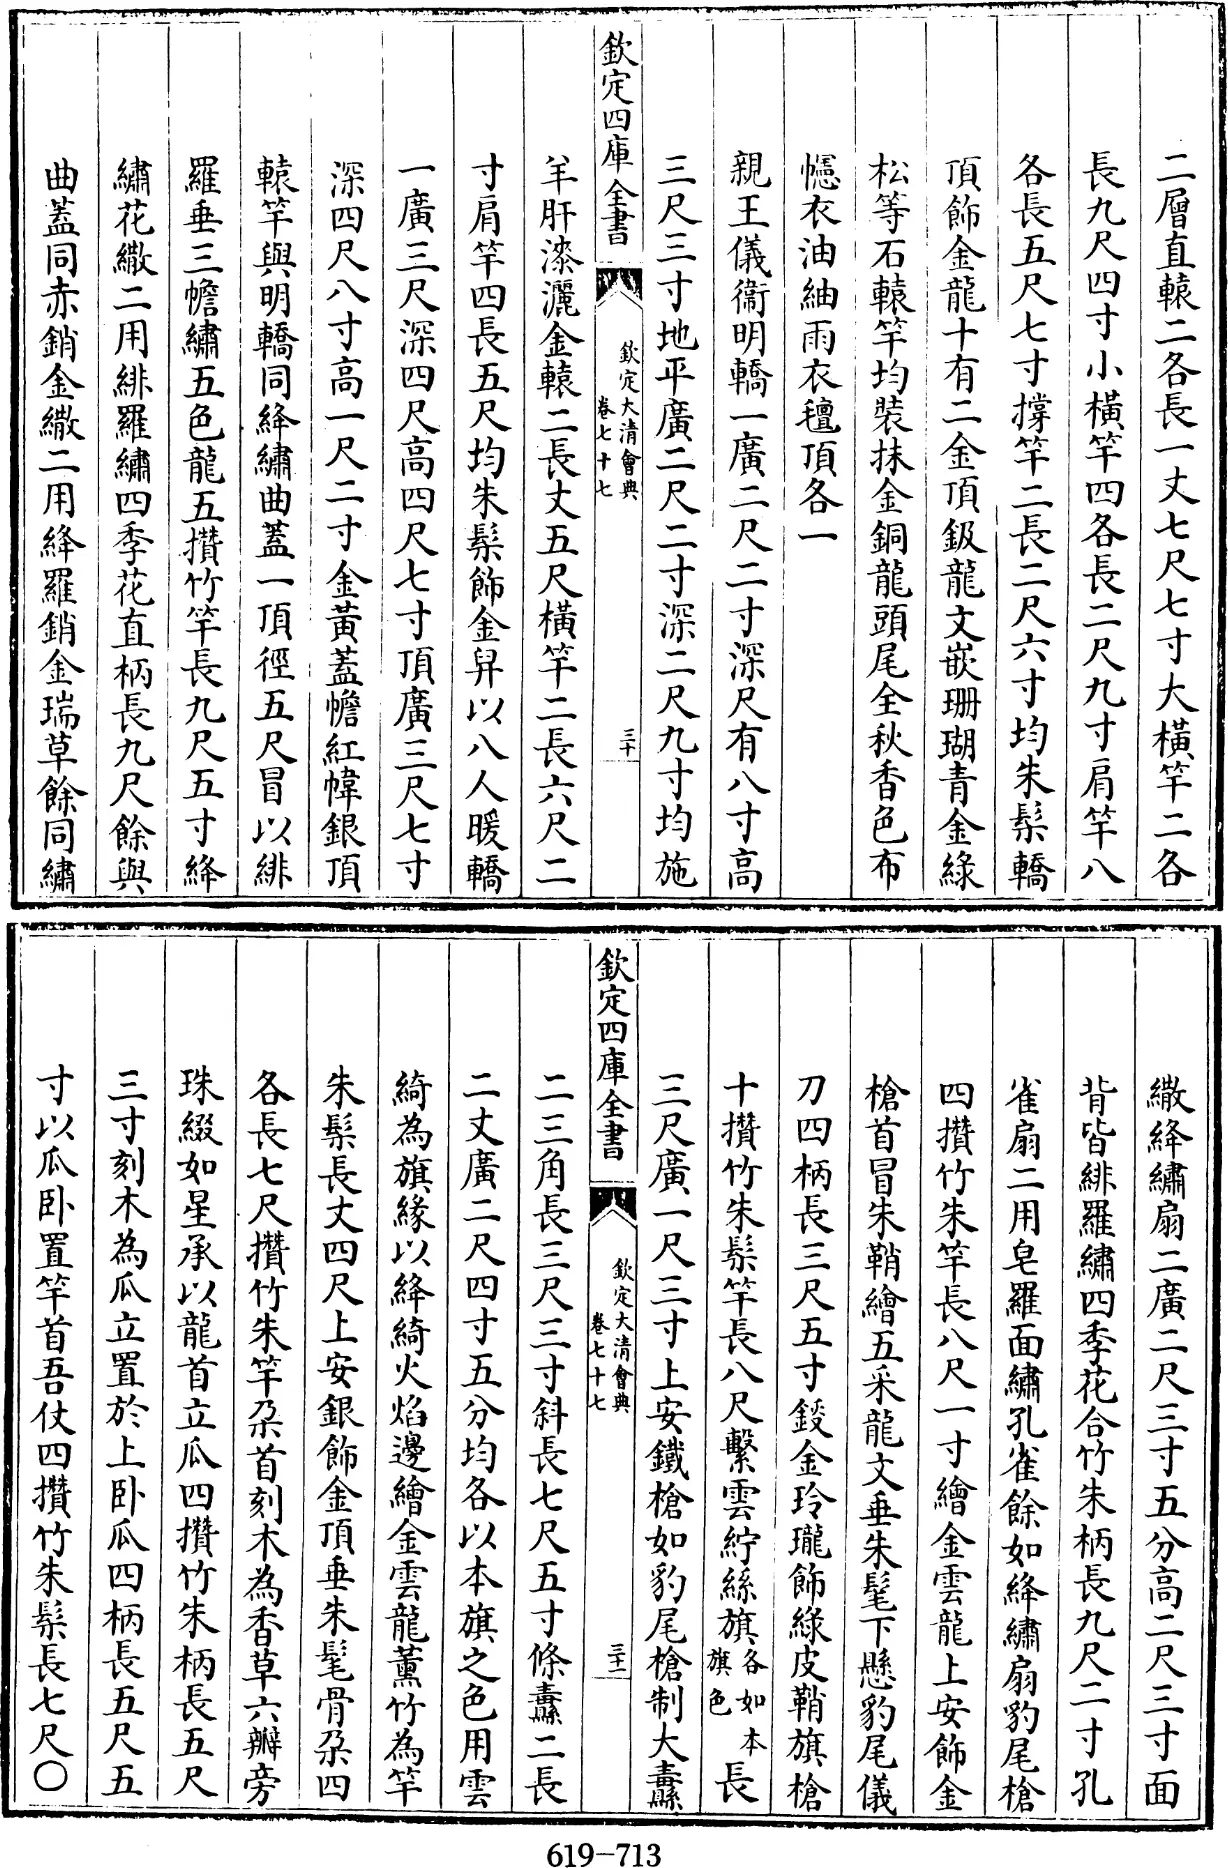 二層直轅二各長一丈七尺七寸大橫竿二各
長九尺四寸小橫竿四各長二尺九寸肩竿八
各長五尺七寸撐竿二長二尺六寸均朱髹轎
頂飾金龍十有二金頂鈒龍文嵌珊瑚青金綠
松等石轅竿均裝抹金銅龍頭尾全秋香色布
幰衣油紬雨衣氊頂各一
親王儀衞明轎一廣二尺二寸深尺有八寸高
三尺三寸地平廣二尺二寸深二尺九寸均施
欽定四庫全書
欽定大清會典
卷七十七
三十
羊肝漆灑金轅二長丈五尺橫竿二長六尺二
寸肩竿四長五尺均朱髹飾金舁以八人暖轎
一廣三尺深四尺高四尺七寸頂廣三尺七寸
深四尺八寸高一尺二寸金黃蓋幨紅幃銀頂
轅竿與明轎同絳繡曲蓋一頂徑五尺冒以緋
羅垂三幨繡五色龍五攢竹竿長九尺五寸絳
繡花繖二用緋羅繡四季花直柄長九尺餘與
曲蓋同赤銷金繖二用絳羅銷金瑞草餘同繡
繖絳繡扇二廣二尺三寸五分高二尺三寸面
背皆緋羅繡四季花合竹朱柄長九尺二寸孔
雀扇二用皂羅面繡孔雀餘如絳繡扇豹尾槍
四攢竹朱竿長八尺一寸繪金雲龍上安飾金
槍首冒朱鞘繪五采龍文垂朱髦下懸豹尾儀
刀四柄長三尺五寸鋄金玲瓏飾綠皮鞘旗槍
十攢竹朱髹竿長八尺繫雲紵絲旗各如本旗色長
三尺廣一尺三寸上安鐵槍如豹尾槍制大纛
欽定四庫全書
欽定大清會典
卷七十七
三十一
二三角長三尺三寸斜長七尺五寸條纛二長
二丈廣二尺四寸五分均各以本旗之色用雲
綺為旗緣以絳綺火焰邊繪金雲龍薰竹為竿
朱髹長丈四尺上安銀飾金頂垂朱髦骨朶四
各長七尺攢竹朱竿朶首刻木為香草六瓣旁
珠綴如星承以龍首立瓜四攢竹朱柄長五尺
三寸刻木為瓜立置於上卧瓜四柄長五尺五
寸以瓜卧置竿首吾仗四攢竹朱髹長七尺〇
619-713